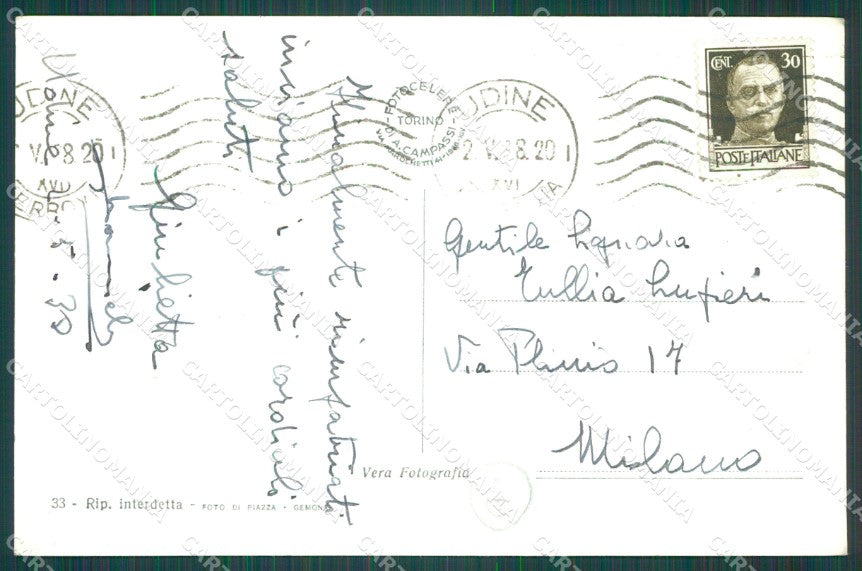 Udine 2-5-38
Finalmente rimpatriati
inviamo i più cordiali
saluti
Giulietta
Gentile Signora
Tullia Lupieri
Via Plinio 17
Milano
CENT. 30
POSTE ITALIANE
UDINE
2.V.38.20
XVI
UDINE
V. 38.20
XVI
FOTOCELERE
TORINO
A. CAMPASSI
Vera Fotografia
33 - Rip. interdetta - FOTO DI PIAZZA - GEMONA
CARTOLINOMANIA